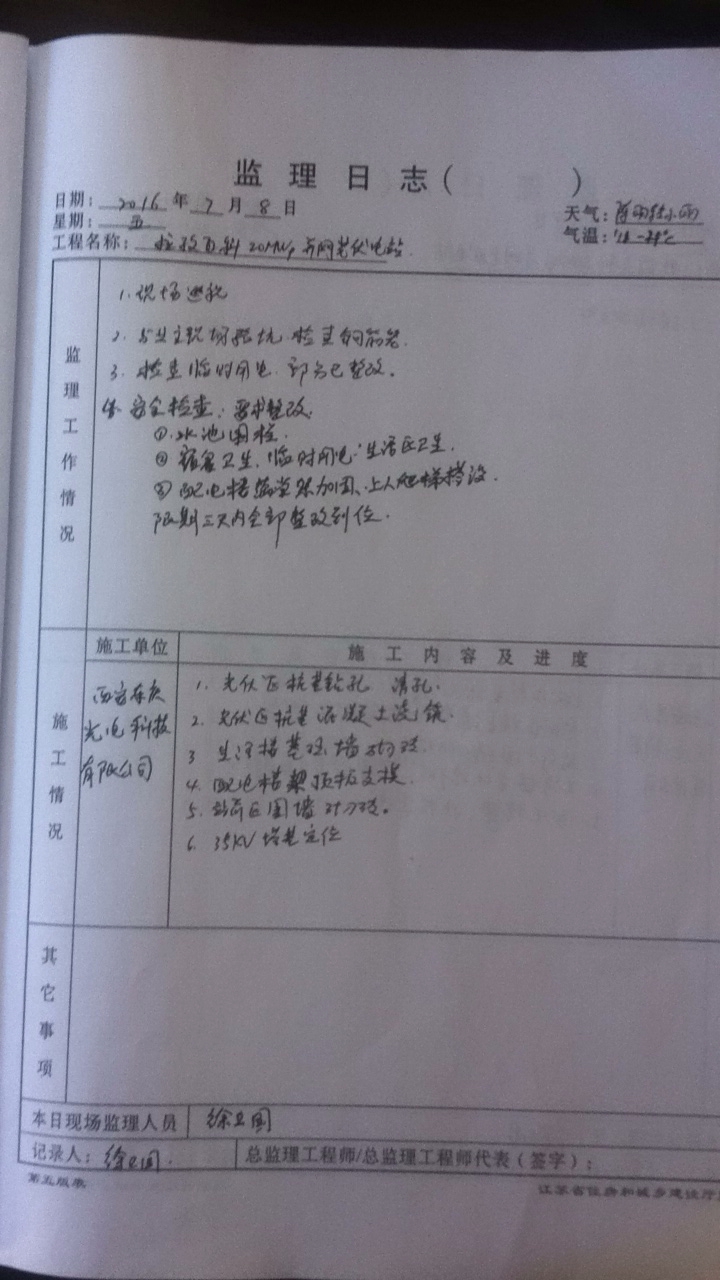 监理日志（ ）
日期：2016年7月8日
天气：阵雨转小雨
星期：五
气温：
工程名称： 20MWp并网光伏电站
监理工作情况
1.现场巡视
2.与业主现场验坑 检查钢筋笼.
3.检查临时用电 部分已整改。
4.安全检查：要求整改.
①.水池围栏.
②宿舍卫生.临时用电.生活区卫生.
③配电楼 加固、上人爬梯搭设.
限期三天内全部整改到位.
施工情况
施工单位
施工内容及进度
光电科技
有限公司
1.光伏区桩基钻孔 清孔.
2.光伏区桩基混凝土浇筑.
3 生活楼基础墙砌砖
4.配电楼梁顶板支模.
5. 围墙砌砖。
6.35KV塔基定位
其它事项
本日现场监理人员 徐卫国
记录人：徐卫国.
总监理工程师/总监理工程师代表（签字）：
第五版表
江苏省住房和城乡建设厅